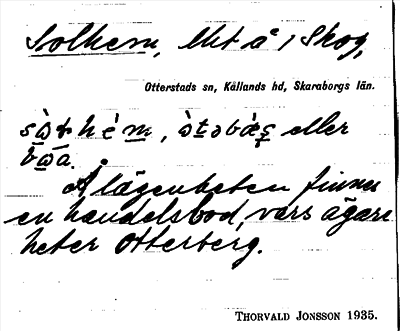 Solhem, lht å 1 Skog,
Otterstads sn, Kållands hd, Skaraborgs län.
eller
Å lägenheten finnes
en handelsbod, vars ägare
heter Otterberg.
THORVALD JONSSON 1935.